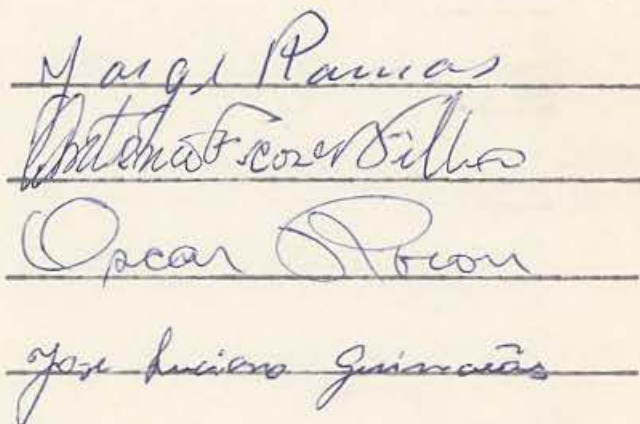 Jorge Ramos
Antonio Filho
Oscar
Jose Luciano Guimarães